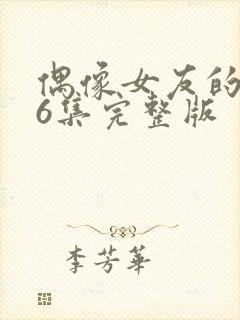 偶像女友的
6集完整版
李芳華